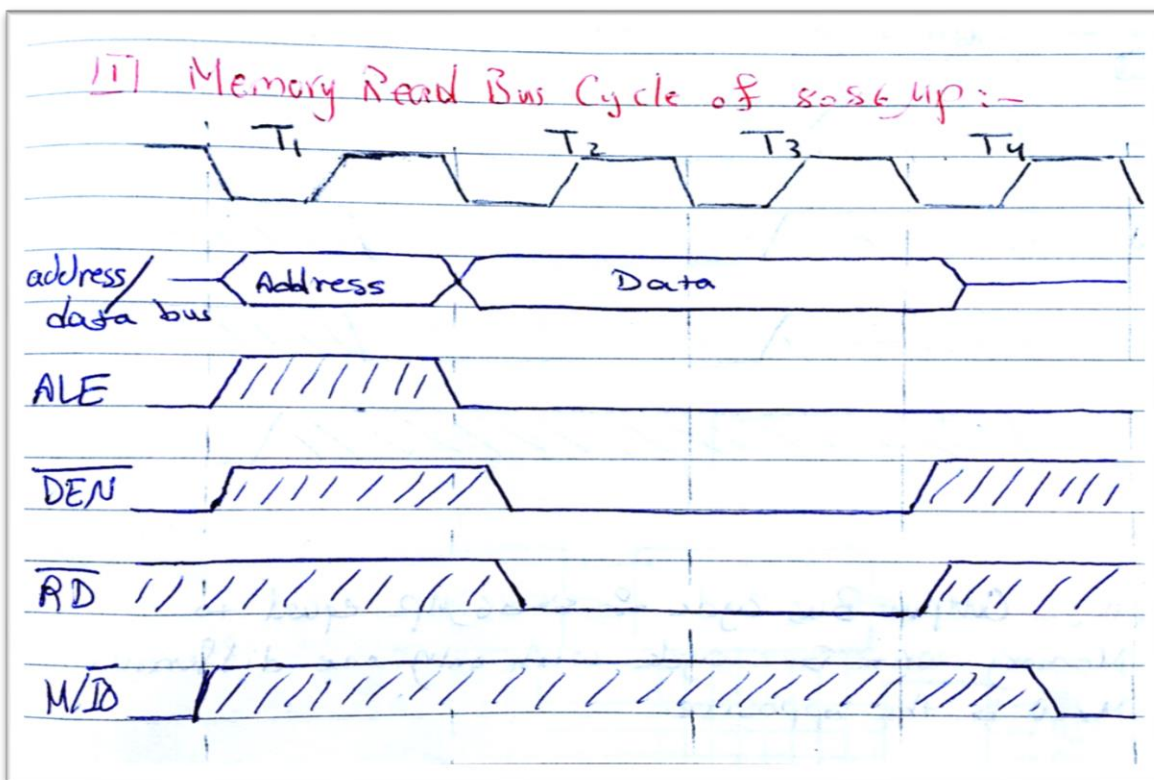 [1] Memory Read Bus Cycle of 8086 μp :-
T1 T2 T3 T4
address/
data bus
Address Data
ALE
D̅E̅N̅
R̅D̅
M/I̅O̅